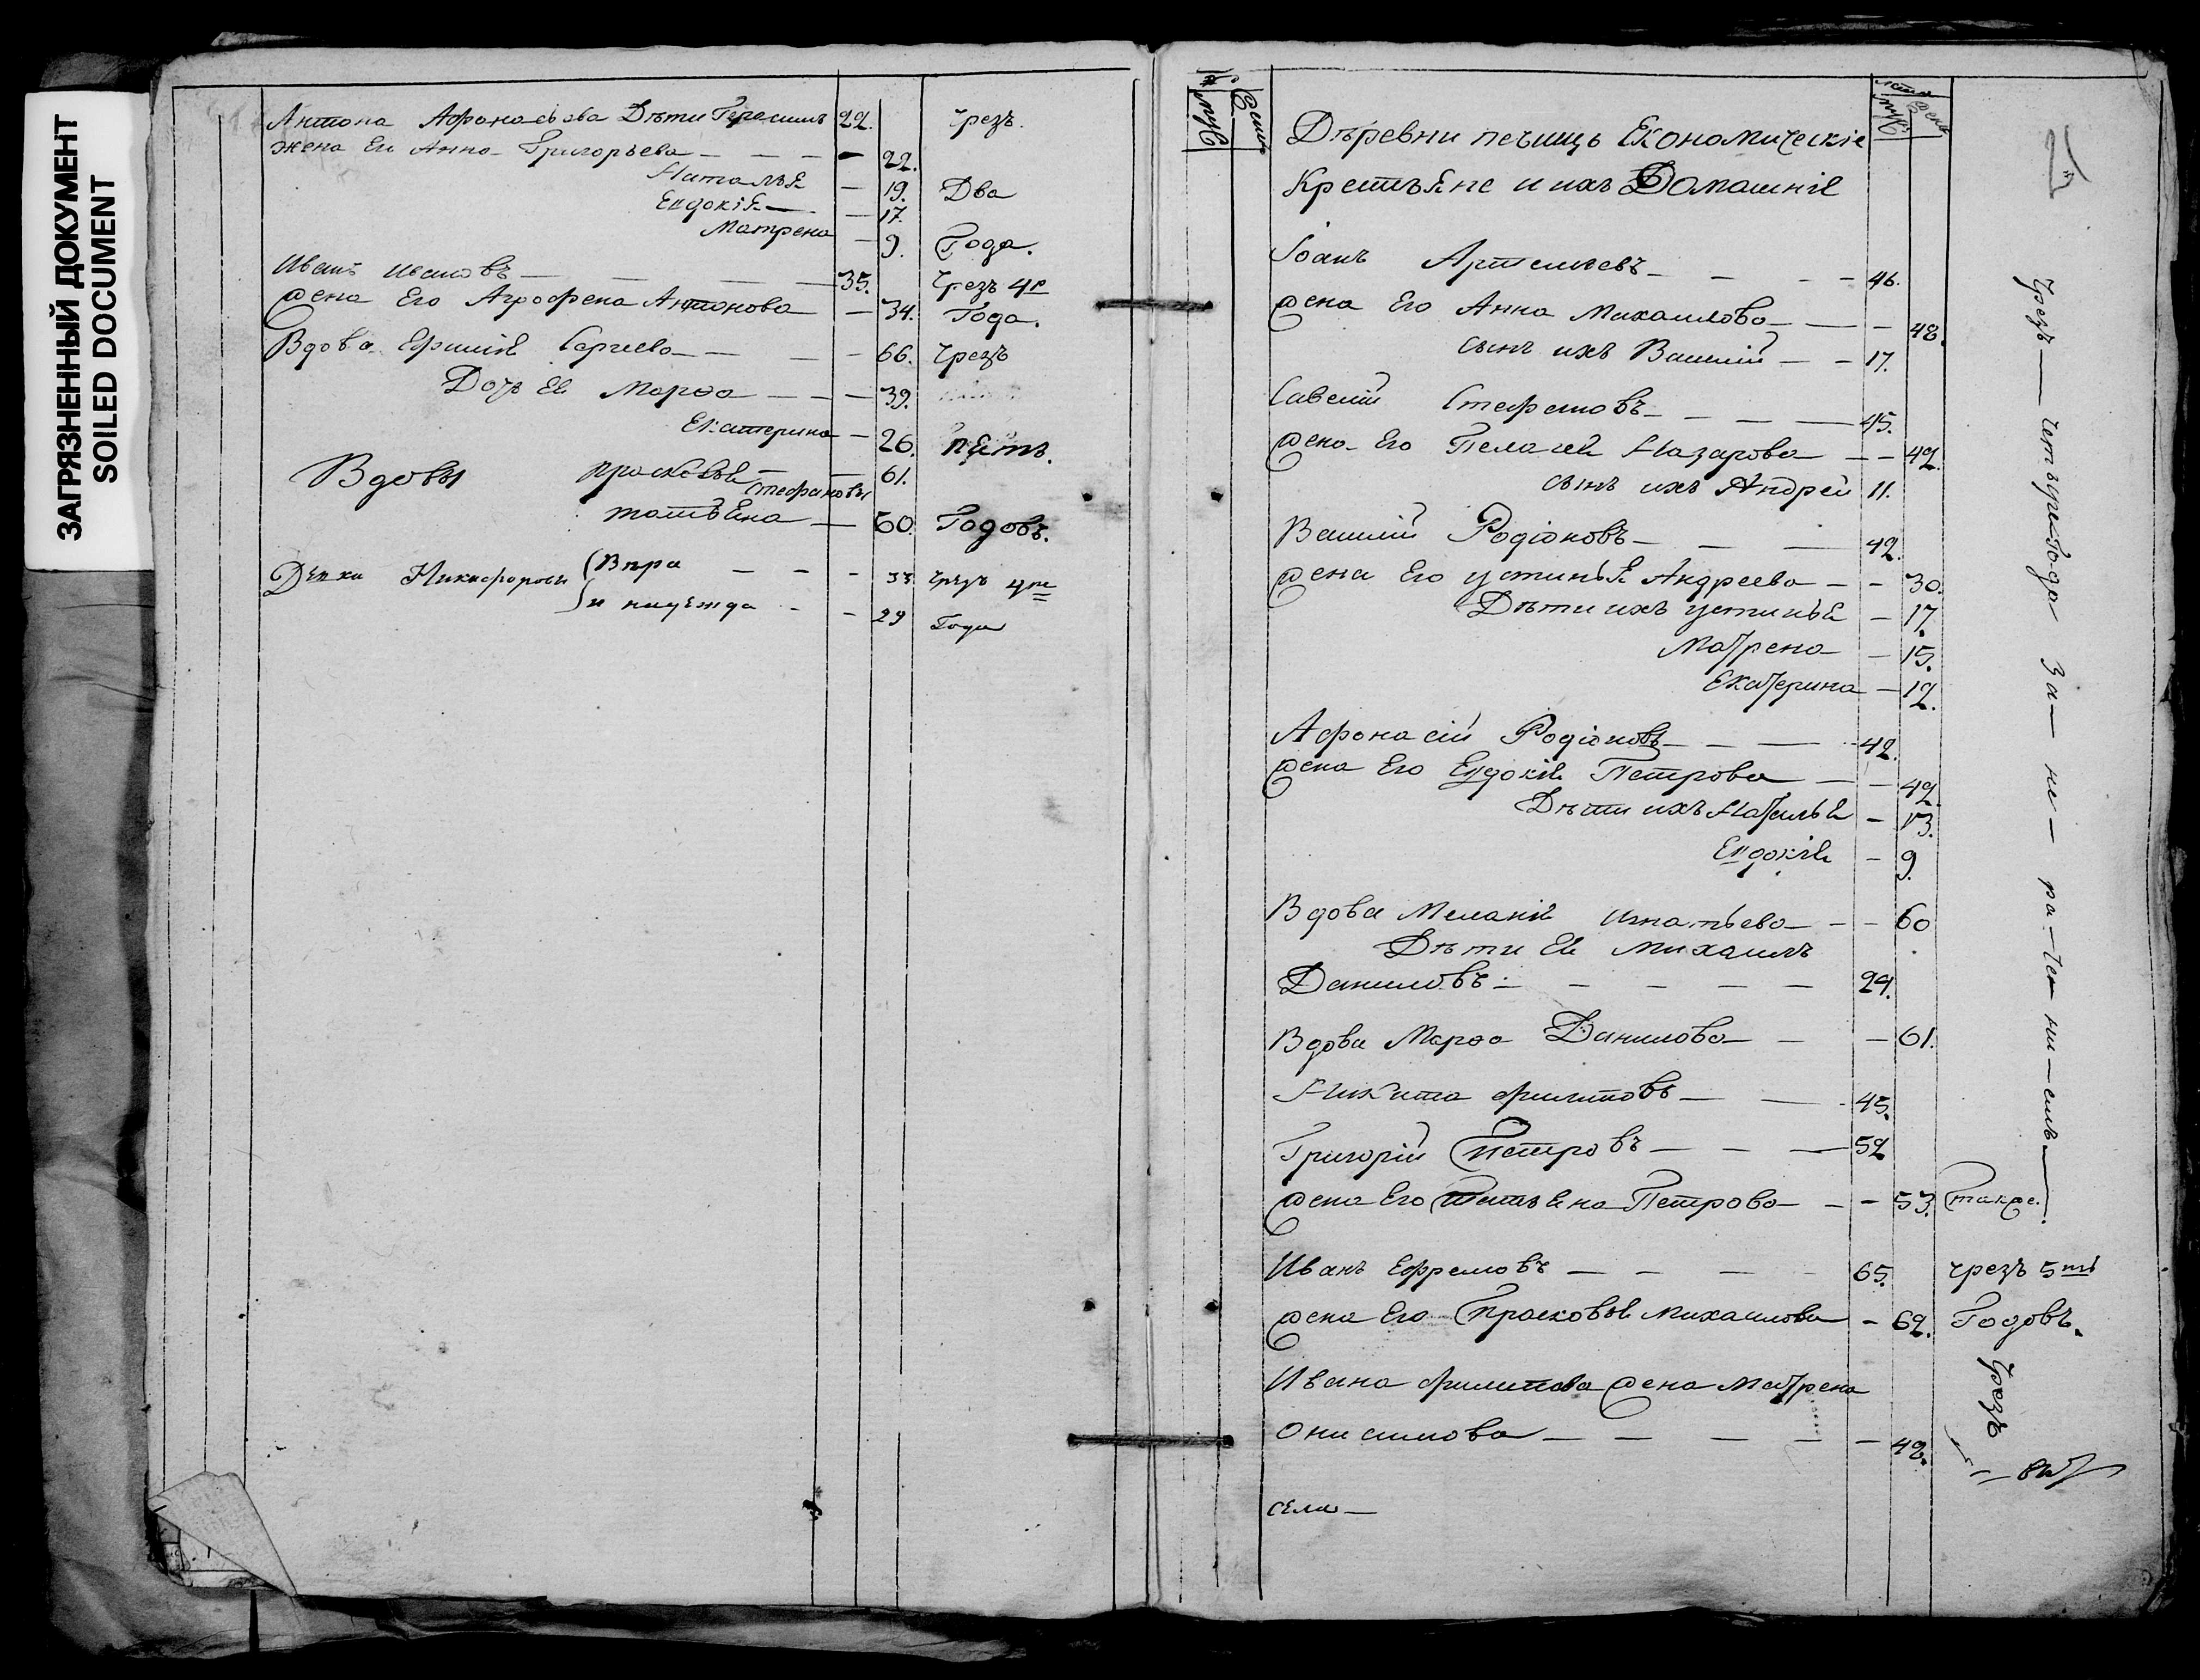 ЗАГРЯЗНЕННЫЙ ДОКУМЕНТ
SOILED DOCUMENT
Антона Афонасьева Дѣти Герасимъ 22. чрезъ
жена Ег Анна Григорьева 22.
Наталья 19. Два
Евдокія 17.
Матрена 9. Года.
Иванъ Ивановъ 35. чрезъ 4р
жена Его Агрофена Антонова 34. Года.
Вдова Ефимія Сергиева 66. чрезъ
Дочь Ея Марѳа 39.
Екатерина 26. пять.
Вдовы прасковья 61.
Стефановы
татьяна 60. Годовъ.
Девки Никифоровы Вѣра 33 чрезъ 4ре
и надежда 29 Года
Муж. Женс. Муж. Женс.
Дѣревни печищь Економическіе
Крестьяне и ихъ Домашніе
Іоанъ Артемьевъ 46.
жена Его Анна Михаилова 48.
сынъ ихъ Василий 17.
Савелий Стефановъ 45.
жена Его Пелагея Назарова 42.
сынъ ихъ Андрей 11.
Василий Родіоновъ 42.
жена Его устинья Андреева 30.
Дѣти ихъ устинья 17.
Матрена 15.
Екатерина 12.
Афонасій Родіоновъ 42.
жена Его Евдокія Петрова 42.
Дѣти ихъ Наталья 13.
Евдокія 9.
Вдова Меланія Игнатьева 60
Дѣти Ея михаилъ
Даниловъ 29.
Вдова Марѳа Данилова 61.
Никита филиповъ 45.
Григорій Петровъ 52
жена Его татьяна Петрова 53. также.
Иванъ Ефремовъ 65. чрезъ 5ть
жена Его Прасковья михаилова 62. Годовъ.
Ивана филипова жена матрена
Онисимова 42.
села
чрезъ четыре года за не ра-че-ни-емъ
чрезъ